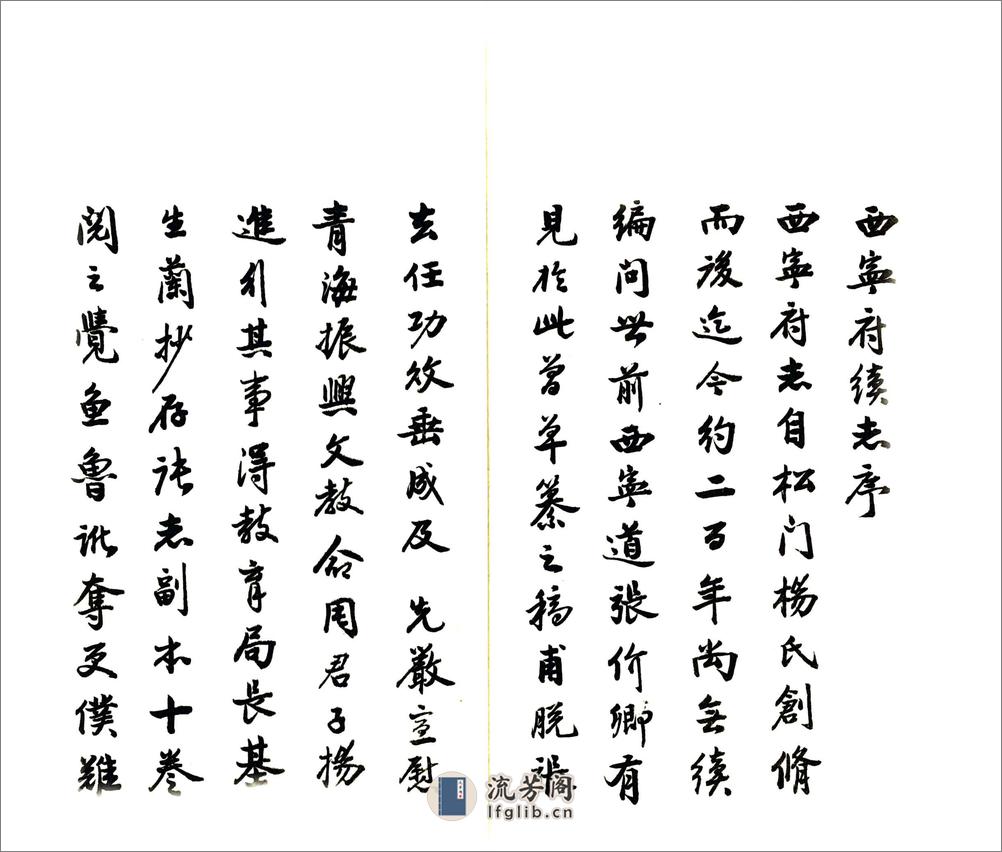 西寧府續志序
西寧府志自松门楊氏創脩
而後迄今約二百年尚無續
編问世前西寧道張价卿有
見於此曾草纂之稿甫脱張
去任功效垂成及 先嚴宣慰
青海振興文教命周君子揚
進行其事得教育局長基
生蘭抄存張志副本十卷
閱之覺魚魯訛奪更僕難
流芳阁
lfglib.cn